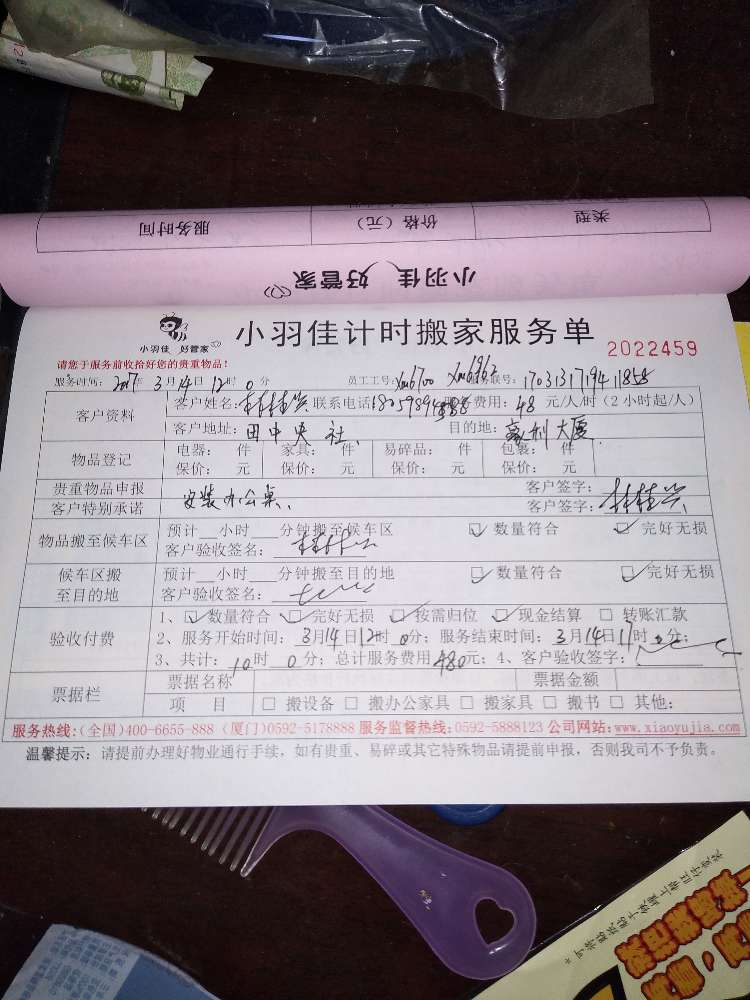 类型 价格（元） 服务时间
小羽佳 好管家
小羽佳 好管家
小羽佳计时搬家服务单
2022459
请您于服务前收拾好您的贵重物品！
服务时间：2017年 3月14日12时0分 员工工号：Xm6700 Xm6962 服务联号：1703131719411858
客户资料 客户姓名：林桂兴 联系电话 服务费用：48 元/人/时（2小时起/人）
客户地址：田中央社 目的地：豪利大厦
物品登记 电器： 件 家具： 件 易碎品： 件 包裹： 件
保价： 元 保价： 元 保价： 元 保价： 元
贵重物品申报 客户签字：
客户特别承诺 安装办公桌、 客户签字：林桂兴
物品搬至候车区 预计__小时___分钟搬至候车区 ☑ 数量符合 ☑ 完好无损
客户验收签名：
候车区搬至目的地 预计__小时___分钟搬至目的地 ☑ 数量符合 ☑ 完好无损
客户验收签名：
验收付费 1、☑ 数量符合 ☑ 完好无损 ☑ 按需归位 ☑ 现金结算 □ 转账汇款
2、服务开始时间：3月14日12时0分；服务结束时间：3月14日11时 分；
3、共计：10时 0分；总计服务费用 480元；4、客户验收签字：
票据栏 票据名称 票据金额
项 目 □ 搬设备 □ 搬办公家具 □ 搬家具 □ 搬书 □ 其他：
服务热线：(全国)400-6655-888 (厦门)0592-5178888 服务监督热线：0592-5888123 公司网站：www.xiaoyujia.com
温馨提示：请提前办理好物业通行手续，如有贵重、易碎或其它特殊物品请提前申报，否则我司不予负责。